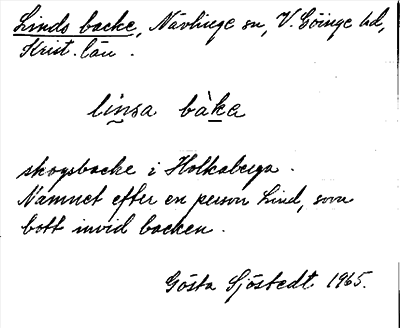 Linds backe, Nävlinge sn, V. Göinge hd,
Krist. län.
li̱nsa bàḵa
skogsbacke i Holkaberga.
Namnet efter en person Lind, som
bott invid backen.
Gösta Sjöstedt 1965.